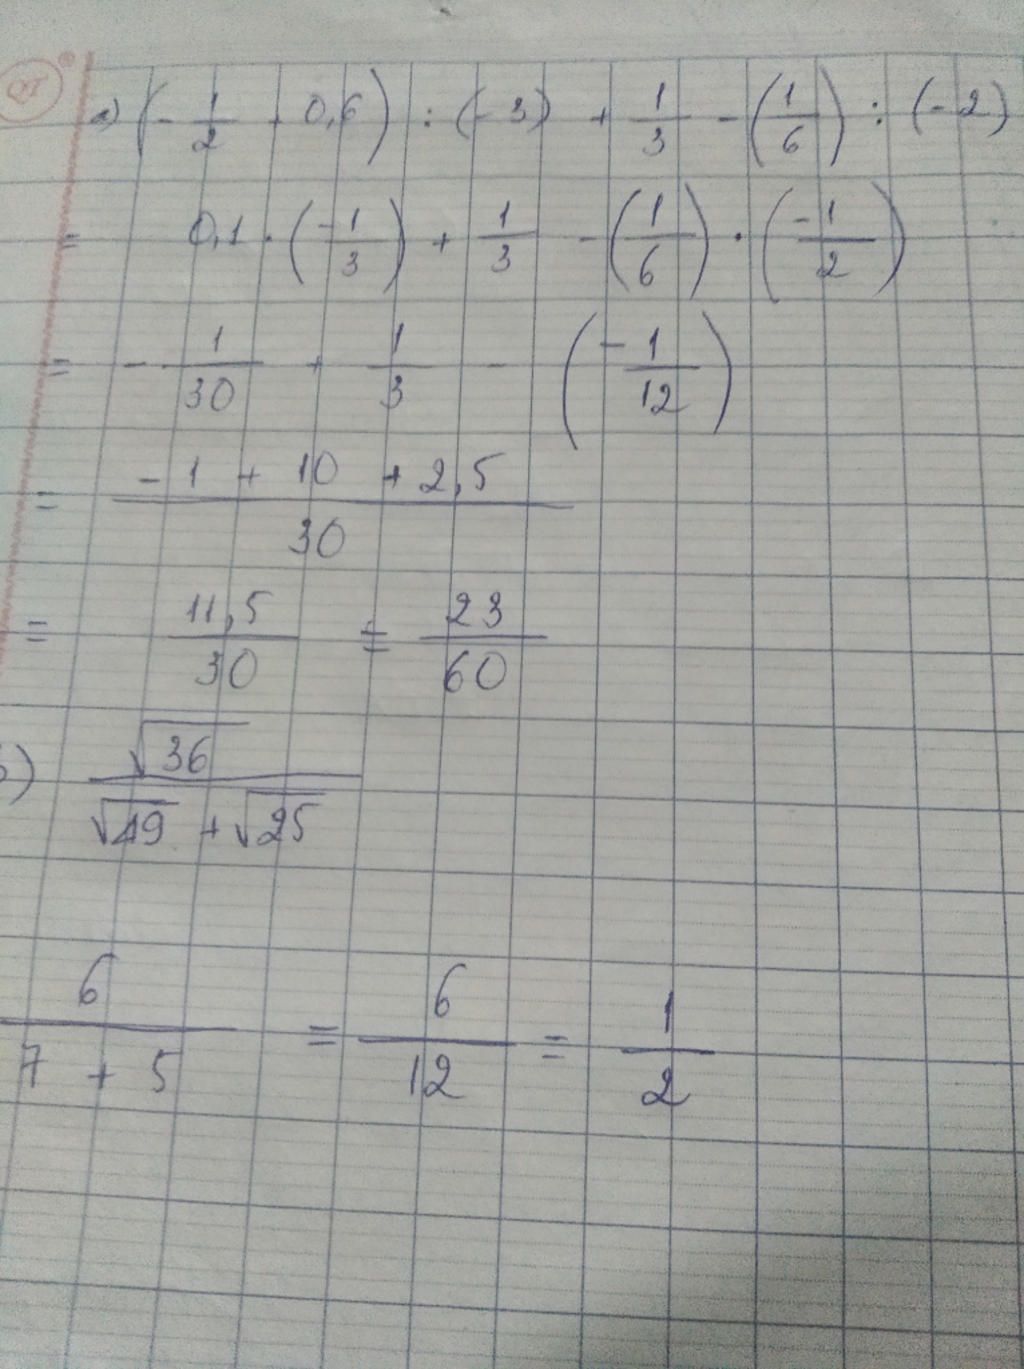 a) (- 1/2 + 0,6) : (- 3) + 1/3 - (1/6) : (- 2)
= 0,1 . (-1/3) + 1/3 - (1/6) . (-1/2)
= - 1/30 + 1/3 - (-1/12)
= (- 1 + 10 + 2,5)/30
= 11,5/30 = 23/60
b) √36/(√49 + √25)
6/(7 + 5) = 6/12 = 1/2